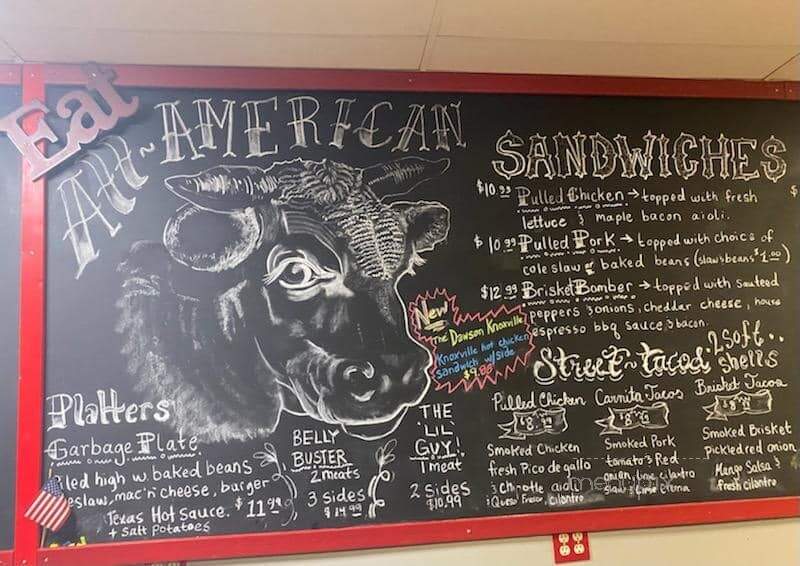 Eat
All-AMERICAN
SANDWICHES
$10.99 Pulled Chicken → topped with fresh
lettuce & maple bacon aioli.
$10.99 Pulled Pork → topped with choice of
coleslaw or baked beans (slaw & beans $1.00)
$12.99 Brisket Bomber → topped with sauteed
peppers & onions, cheddar cheese, house
espresso bbq sauce & bacon.
New
The Dawson Knoxville
Knoxville hot chicken
sandwich w/side
Street-tacos 2 soft
shells
Pulled Chicken
Smoked Chicken
fresh Pico de gallo
& Chipotle
Queso Fresco, Cilantro
Carnita Tacos
Smoked Pork
tomato & Red
onion, lime, cilantro
slaw
crema
Brisket Tacos
Smoked Brisket
Pickled red onion
Mango Salsa &
fresh cilantro
Platters
Garbage Plate
Piled high w. baked beans
coleslaw, mac'n'cheese, burger
Texas Hot Sauce. $11.99
+ salt potatoes
BELLY
BUSTER
2 meats
3 sides
$14.99
THE
'LIL
GUY!
1 meat
2 sides
$10.99